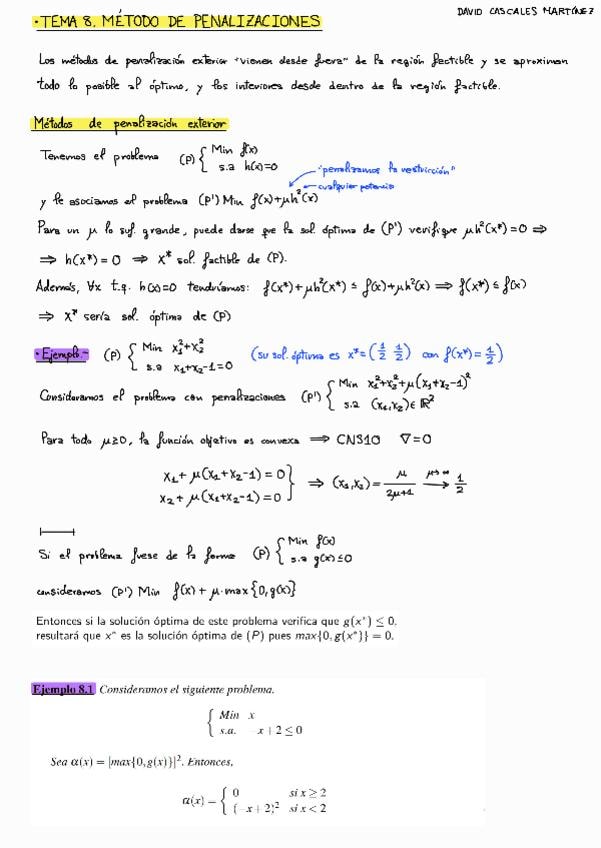 DAVID CASCALES MARTÍNEZ
· TEMA 8. MÉTODO DE PENALIZACIONES
Los métodos de penalización exterior "vienen desde fuera" de la región factible y se aproximan
todo lo posible al óptimo, y los interiores desde dentro de la región factible.
Métodos de penalización exterior
Tenemos el problema (P) { Min f(x)
s.a h(x)=0
"penalizamos la restricción"
cualquier potencia
y le asociamos el problema (P') Min f(x)+μh²(x)
Para un μ lo suf. grande, puede darse que la sol. óptima de (P') verifique μh²(x*)=0 ⇒
⇒ h(x*)=0 ⇒ x* sol. factible de (P).
Además, ∀x t.q. h(x)=0 tendríamos: f(x*)+μh²(x*) ≤ f(x)+μh²(x) ⇒ f(x*) ≤ f(x)
⇒ x* sería sol. óptima de (P)
· Ejemplo.- (P) { Min x₁²+x₂²
s.a x₁+x₂-1=0
(su sol. óptima es x*=(1/2 1/2) con f(x*)=1/2)
Consideramos el problema con penalizaciones (P') { Min x₁²+x₂²+μ(x₁+x₂-1)²
s.a (x₁,x₂)∈ℝ²
Para todo μ≥0, la función objetivo es convexa ⇒ CNS1O ∇=0
x₁+μ(x₁+x₂-1)=0
x₂+μ(x₁+x₂-1)=0 } ⇒ (x₁,x₂)= μ/(2μ+1) →(μ→∞) 1/2
Si el problema fuese de la forma (P) { Min f(x)
s.a g(x)≤0
consideramos (P') Min f(x)+μ·max{0,g(x)}
Entonces si la solución óptima de este problema verifica que g(x*) ≤ 0,
resultará que x* es la solución óptima de (P) pues max{0, g(x*)} = 0.
Ejemplo 8.1 Consideramos el siguiente problema.
{ Min x
s.a. −x + 2 ≤ 0
Sea α(x) = |max{0, g(x)}|². Entonces,
α(x) = { 0 si x ≥ 2
(−x + 2)² si x < 2